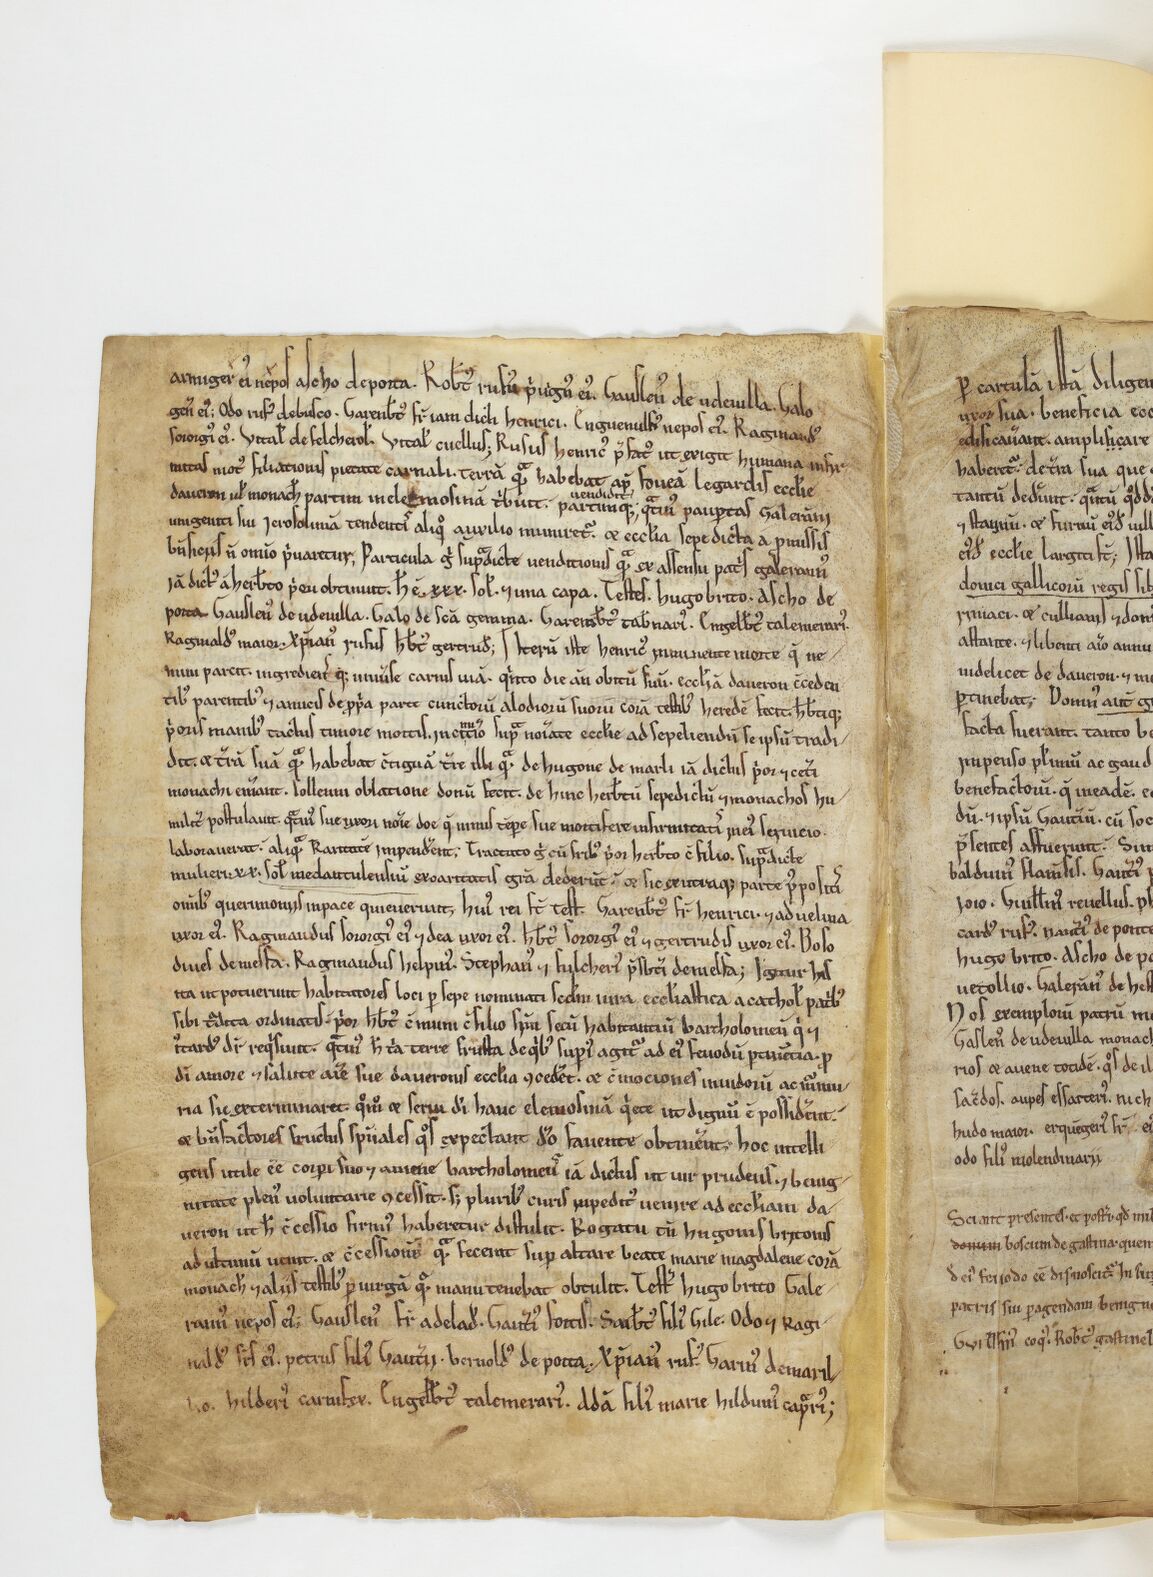 armiger ei nepos ascho de porta. Robt' rufus p'uign' ei. Gauslen' de udeuilla. Galo
gen' ei; Odo ruf' de busco. Garenbt' fr' iam dicti henrici. Enguenulf' nepos ei. Raginaud'
sororgi' ei. Vital' de felcherol'. Vital' cuellus; Rufus henric' p'fat' ut exigit humana infir
mitas mot' filiationis pietate carnali. terrā quā habebat ap' foueā legardis ecclie
daueron ul' monach' partim in elemosinā t'buit. partimq; uendidit q̄tin' paup'tas Galerāni
unigeniti sui Ierosolimā tendentis aliq̊ auxilio muniret'. & ecclia sepe dicta a p'missis
b'nficiis n̄ om̄io p'uaretur; Particula g' sup'dicte uenditionis quā ex assensu pat's galerann'
iā dict' a herbto p'ori obtinuit. h' ē. xxx. sol'. & una capa. Testes. hugo brito. Ascho de
porta. Gauslen' de udeuilla. Galo de scā gemma. Garenbt' tab'nari'. Engelbt' talemerari'.
Raginald' maior. xp̄ian' rufus hbt' gertrud'; Iterū iste henric' imminente morte q̄ ne
mini parcit. ingredient' q; uniuse carnis uiā. q'nto die an' obitū suū. eccliā daueron c̄ceden
tib' parentib' & amicis de p'p'a parte cunctorū alodiorū suorū corā testib' heredē fecit. hbtiq;
p'oris manib' tactus timore mortis. in cimit'io sup' no'iate ecclie ad sepeliendū se ipsū tradi
dit. & t'rā suā quā habebat c̄tiguā t're illi quā de hugone de marli iā dictus p'or & cet'i
monachi emerant. sollenni oblatione donū fecit. de hinc herbtū sepedictū & monachos hu
milit' postulauit. q̄tin' sue uxori no'ie doe q̄ inimis tēpe sue mortifere infirmitatis in ei' seruicio
laborauerat. aliquā karitatē impenderent; Tractato g' cū frib' p'or herbt' c̄silio. sup'dicte
mulieri. xx. sol' medantulensiū ex caritatis gr̄a dederūt. & sic ex utraq; parte p'positis
omīb' querimoniis in pace quieuerunt; hui' rei st' test'. Garenbt' fr' henrici. & aduelina
uxor ei'. Raginaudus sororgi' ei' & dea uxor ei'. hbt' sororgi' ei' & gertrudis uxor ei'. Boso
diues de mesta. Raginaudus helpin'. Stephan' & fulcheri' p'sbt'i de mesta; Igitur his
ita ut potuerunt habitatores loci p' sepe nominati scdm iura eccliastica a cathol' patrib'
sibi t'dita ordinatis. p'or hbt' c̄muni c̄silio sp'm secū habitantiū bartholomeū q' &
ricard' dr' req'siuit. q̄tin' h' t'a terre frusta de q'b' superi' agit' ad ei' feuodū p'tinētia. p
di' amore & salute aīe sue daueronis ecclie ccedet. & c̄mociones inuidorū ac iniu
ria sic exterminaret. q̊m & serui di' hanc elemosinā q'ete ut dignū ē possiderent.
& b'nfactores fructus sp'uales q̊s expectant do' fauente obtinerent. hoc intelli
gens utile ēē corpi suo & anime bartholomeus iā dictus ut uir prudens. & benig
nitate plen' uoluntarie cessit. s; plurib' curis inpedit' uenire ad eccliam da
ueron ut h' c̄cessio firmi' haberetur distulit. Rogatu tn̄ hugonis britonis
ad ultimū uenit. & c̄cessionē quā fecerat sup' altare beate marie magdalene corā
monach' & aliis testib' p' uirgā quā manu tenebat obtulit. Test' hugo brito Gale
rann' nepos ei'; Gauslen' fr' adelad'. Gaut'i' fortis. Saubt' fili' Gile. Odo & Ragi
nald' frs ei'. petrus fili' Gaut'ij. bernold' de porta. xp̄ian' ruf'. Garin' de maril
ho. hilderi' carnifex. Engelbt' talemerari'. Adā fili' marie hilduin' caprari';
p' cartulā istā diligen
uxor sua. beneficia ecc
edificauerant. amplificare
haberet'. de t'ra sua que
tantū dederunt. q̄ntū q̊d d
& stagnū. & furnū ei'd' uill
ei'd' ecclie largiti st'; Ista
donici gallicorū regis fili
riniaci. & cullianis & don
astante. & libenti aīo annu
uidelicet de daueron. & m
p'tinebat; Domin' aut' g
facta fuerant. tanto be
impenso pl'imū ac gaud
benefactorū. q̄ in eadē. e
dū. & ipsū Gaut'iū. cū soc
p'sentes affuerunt. Sim
balduin' flam'sis. Gaut'i' p
ioio. Guillm' reuellus. ph
card' ruf'. naut'i' de ponte
hugo brito. Ascho de po
uetollio. Galerann' de hest
Nos exemplorū patrū m
Gaslen' de udeuilla monach
rios & auene totidē. q̊s de il
sacerdos. aupes essarteri'. rich
hudo maior. erquegeri' fr' ei
odo fili' molendinarij
Sciant presentes. et post'i. qd mil
donum boscum de gastina. quem
d' ei' feuodo eē dinoscit'. In hu
patris sui p'agendam benigne
Guillm' coq'. Robt' gastinel